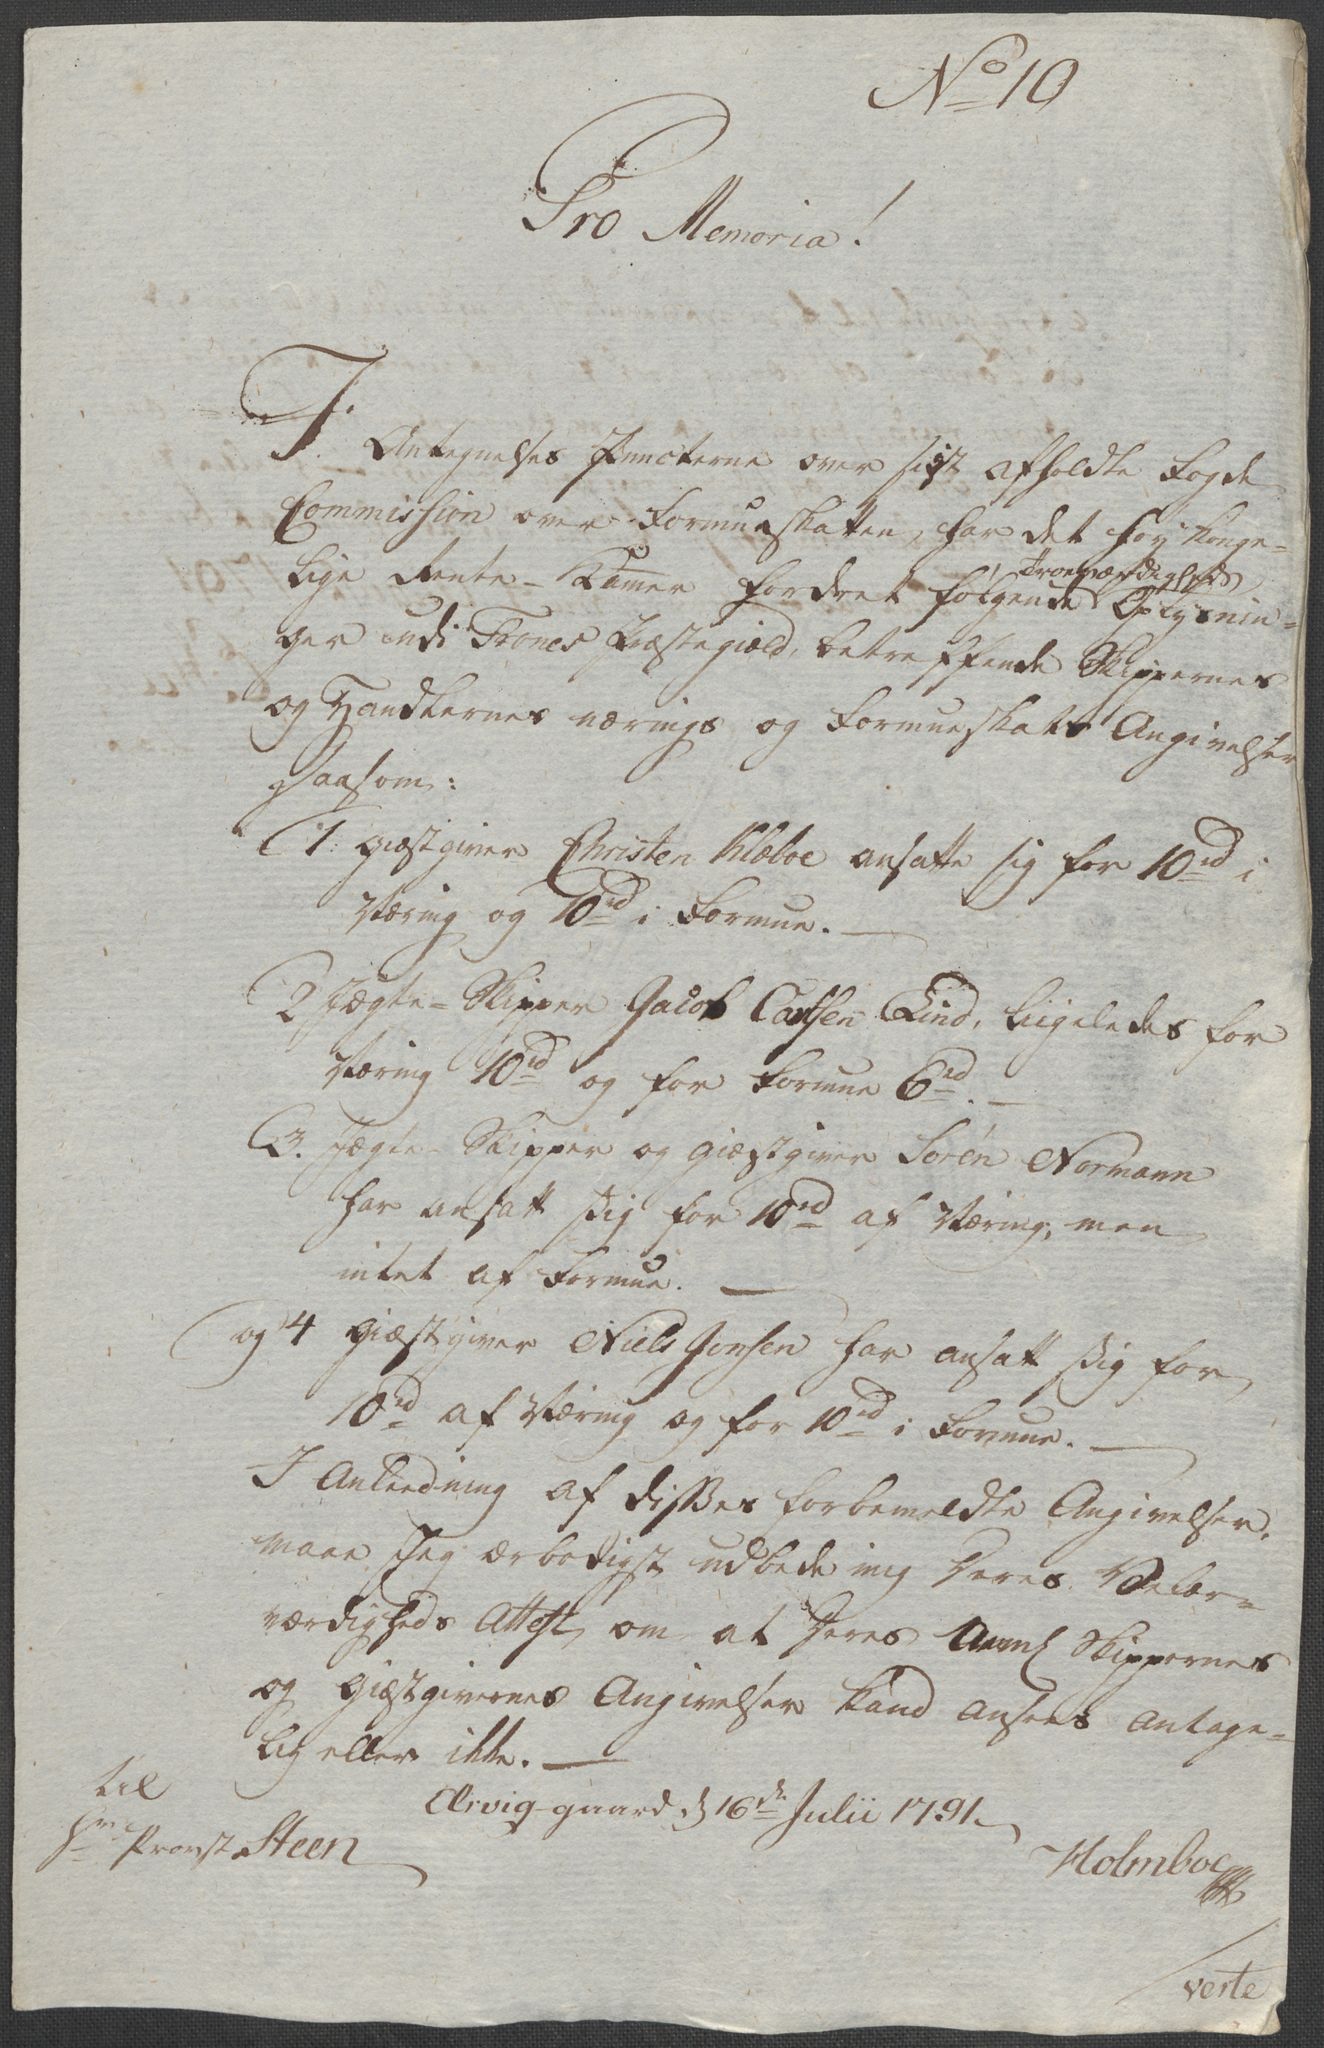 No 10
Pro Memoria!
I Antegnelses Puncterne over sist afholdte Fogde
Commission over Formueskatten, har det høy Konge-
lige Rente-Kamer fordret følgende Troeværdigheds Oplysnin-
ger udi Trones Præstegield, betreffende Skippernes
og Handlernes nærings og Formueskats Angivelser
saasom:
1. Giæstgiver Christen Klæboe ansatte sig for 10 rd i
Næring og 10 rd i Formue.
2 Jægte-Skipper Jacob Carlsen Lind, ligeledes for
Næring 10 rd og for Formue 6 rd.
3. Jægte-Skipper og giæstgiver Sørén Normann
har ansatt sig for 10 rd af Næring, men
intet af Formue.
og 4 Giæstgiver Niels Jonsen har ansatt sig for
10 rd af Næring og for 10 rd i Formue.
I Anledning af disses forbemeldte Angivelser,
maae Jeg ærbødigst udbede mig Deres Velær-
værdigheds Attest, om at deres Skippernes
og Giæstgivernes Angivelser kand ansees antage-
lig eller ikke.
Ørvig-gaard d 16de Julii 1791.
til
Hr Provst Steen
Holmboe
verte